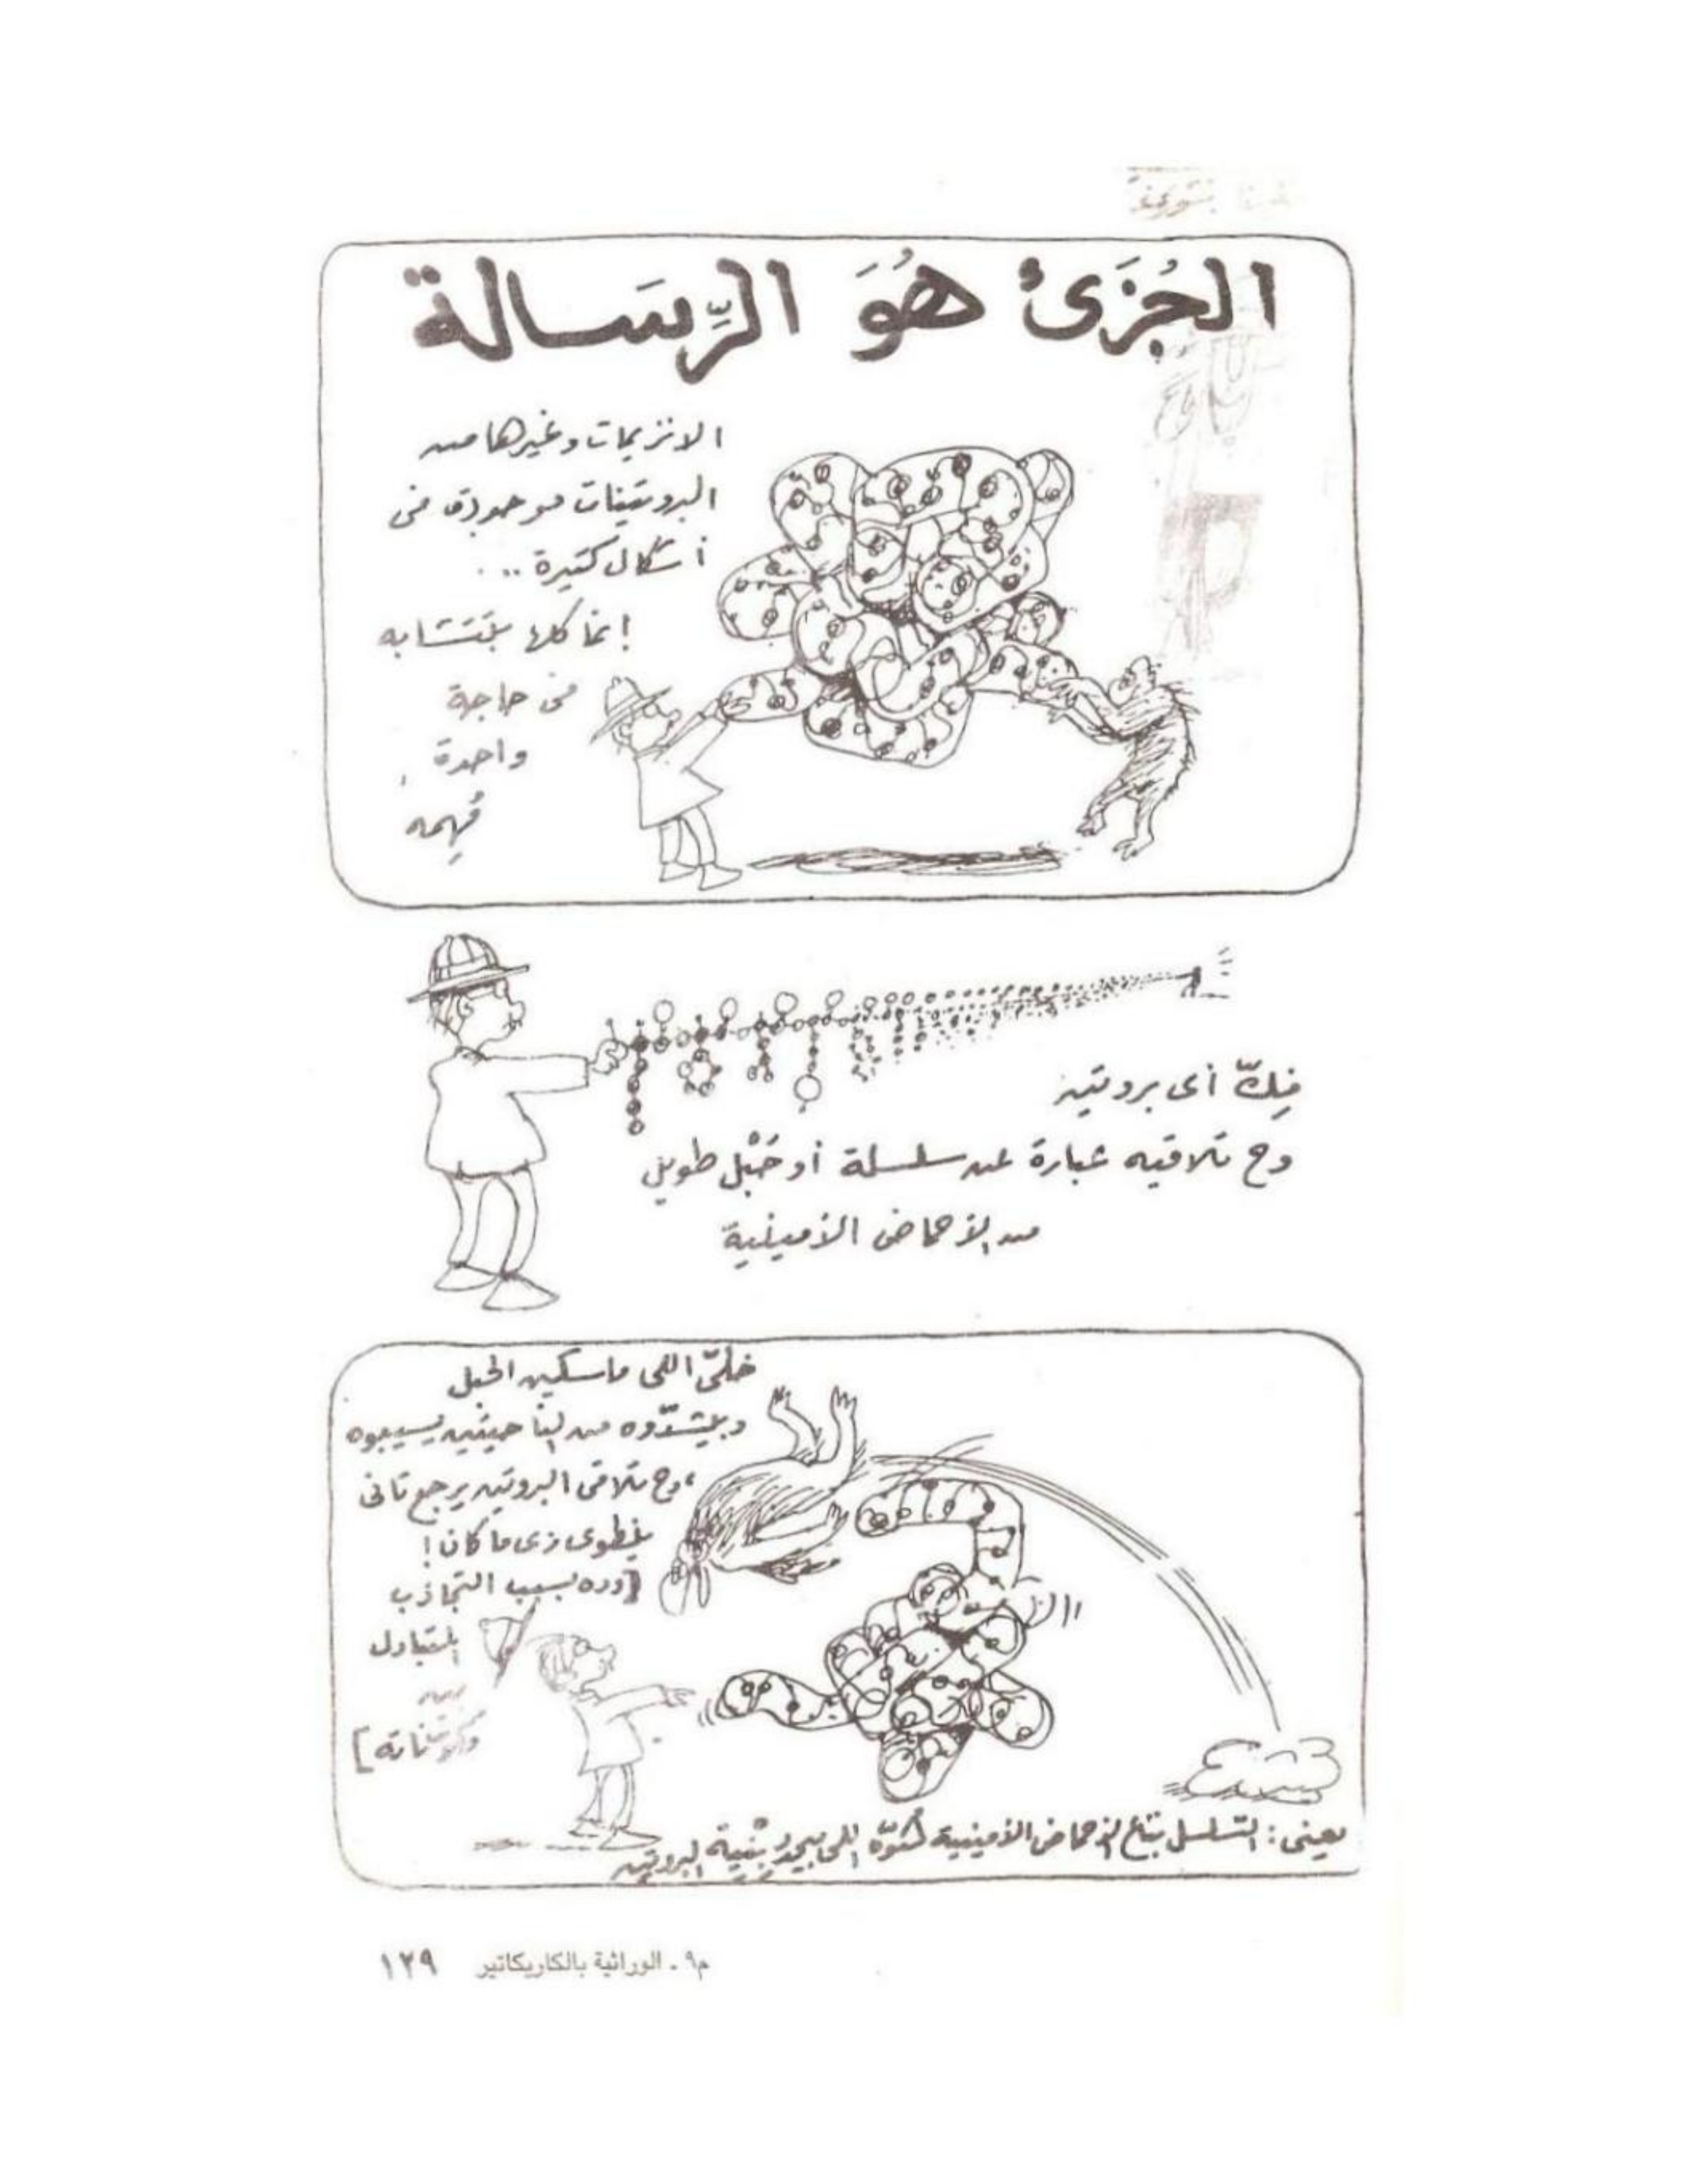 الجُزَئ هُوَ الرِّسَالة
الانزيمات وغيرها من
البروتينات موجودة فى
أشكال كتيرة ...
إنما كلها بتتشابه
فى حاجة
واحدة
مُهِمه
فِكّ أى بروتين
وح تلاقيه عبارة عن سلسلة أو حَبْل طويل
من الأحماض الأمينية
خلّى اللى ماسكين الحبل
وبيشدّوه من الناحيتين يسيبوه
،وح تلاقى البروتين يرجع تانى
ينطوى زى ما كان!
[وده بسبب التجاذب
المتبادل
بين
مُكوّناته]
يعنى: التسلسل بتاع الأحماض الأمينية هُوّه اللى بيحدد بِنْية البروتين
م٩ - الوراثية بالكاريكاتير ١٢٩